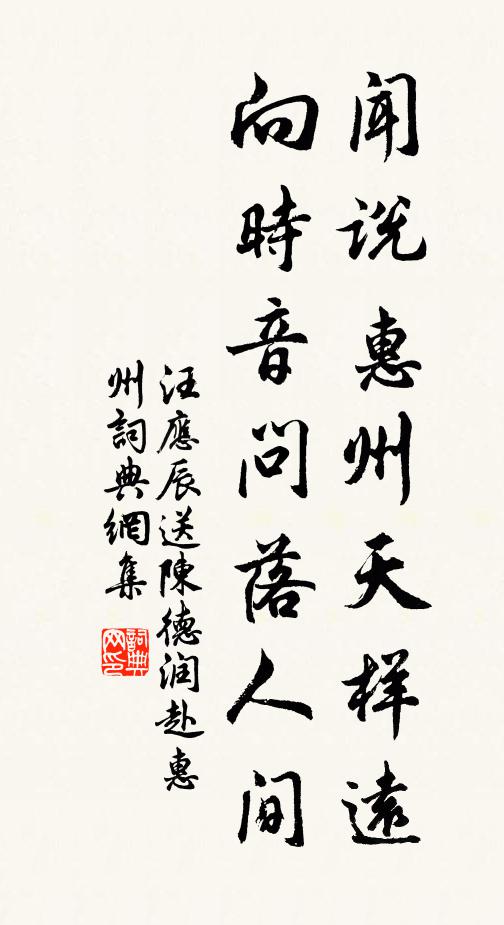 闻説惠州天样遠
向時音问落人间
汪應辰送陳德润赴惠
州詞典網集
詞典
网印